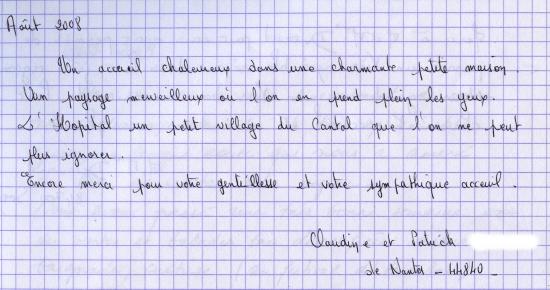 Août 2008
Un accueil chaleureux dans une charmante petite maison.
Un paysage merveilleux où l'on en prend plein les yeux.
L'Hopital un petit village du Cantal que l'on ne peut
plus ignorer.
Encore merci pour votre gentillesse et votre sympathique acceuil.
Claudine et Patrick
de Nantes - 44840 -